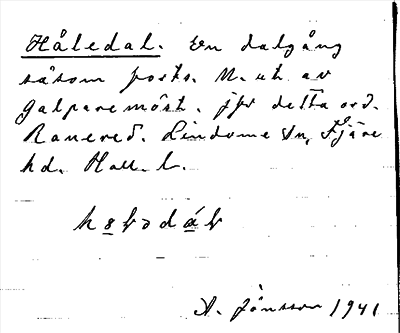 Håledal. En dalgång
såsom forts. N. ut av
Galparemöst. jfr detta ord.
Ranered. Lindome sn, Fjäre
hd. Hall. l.
A. Jönsson 1941